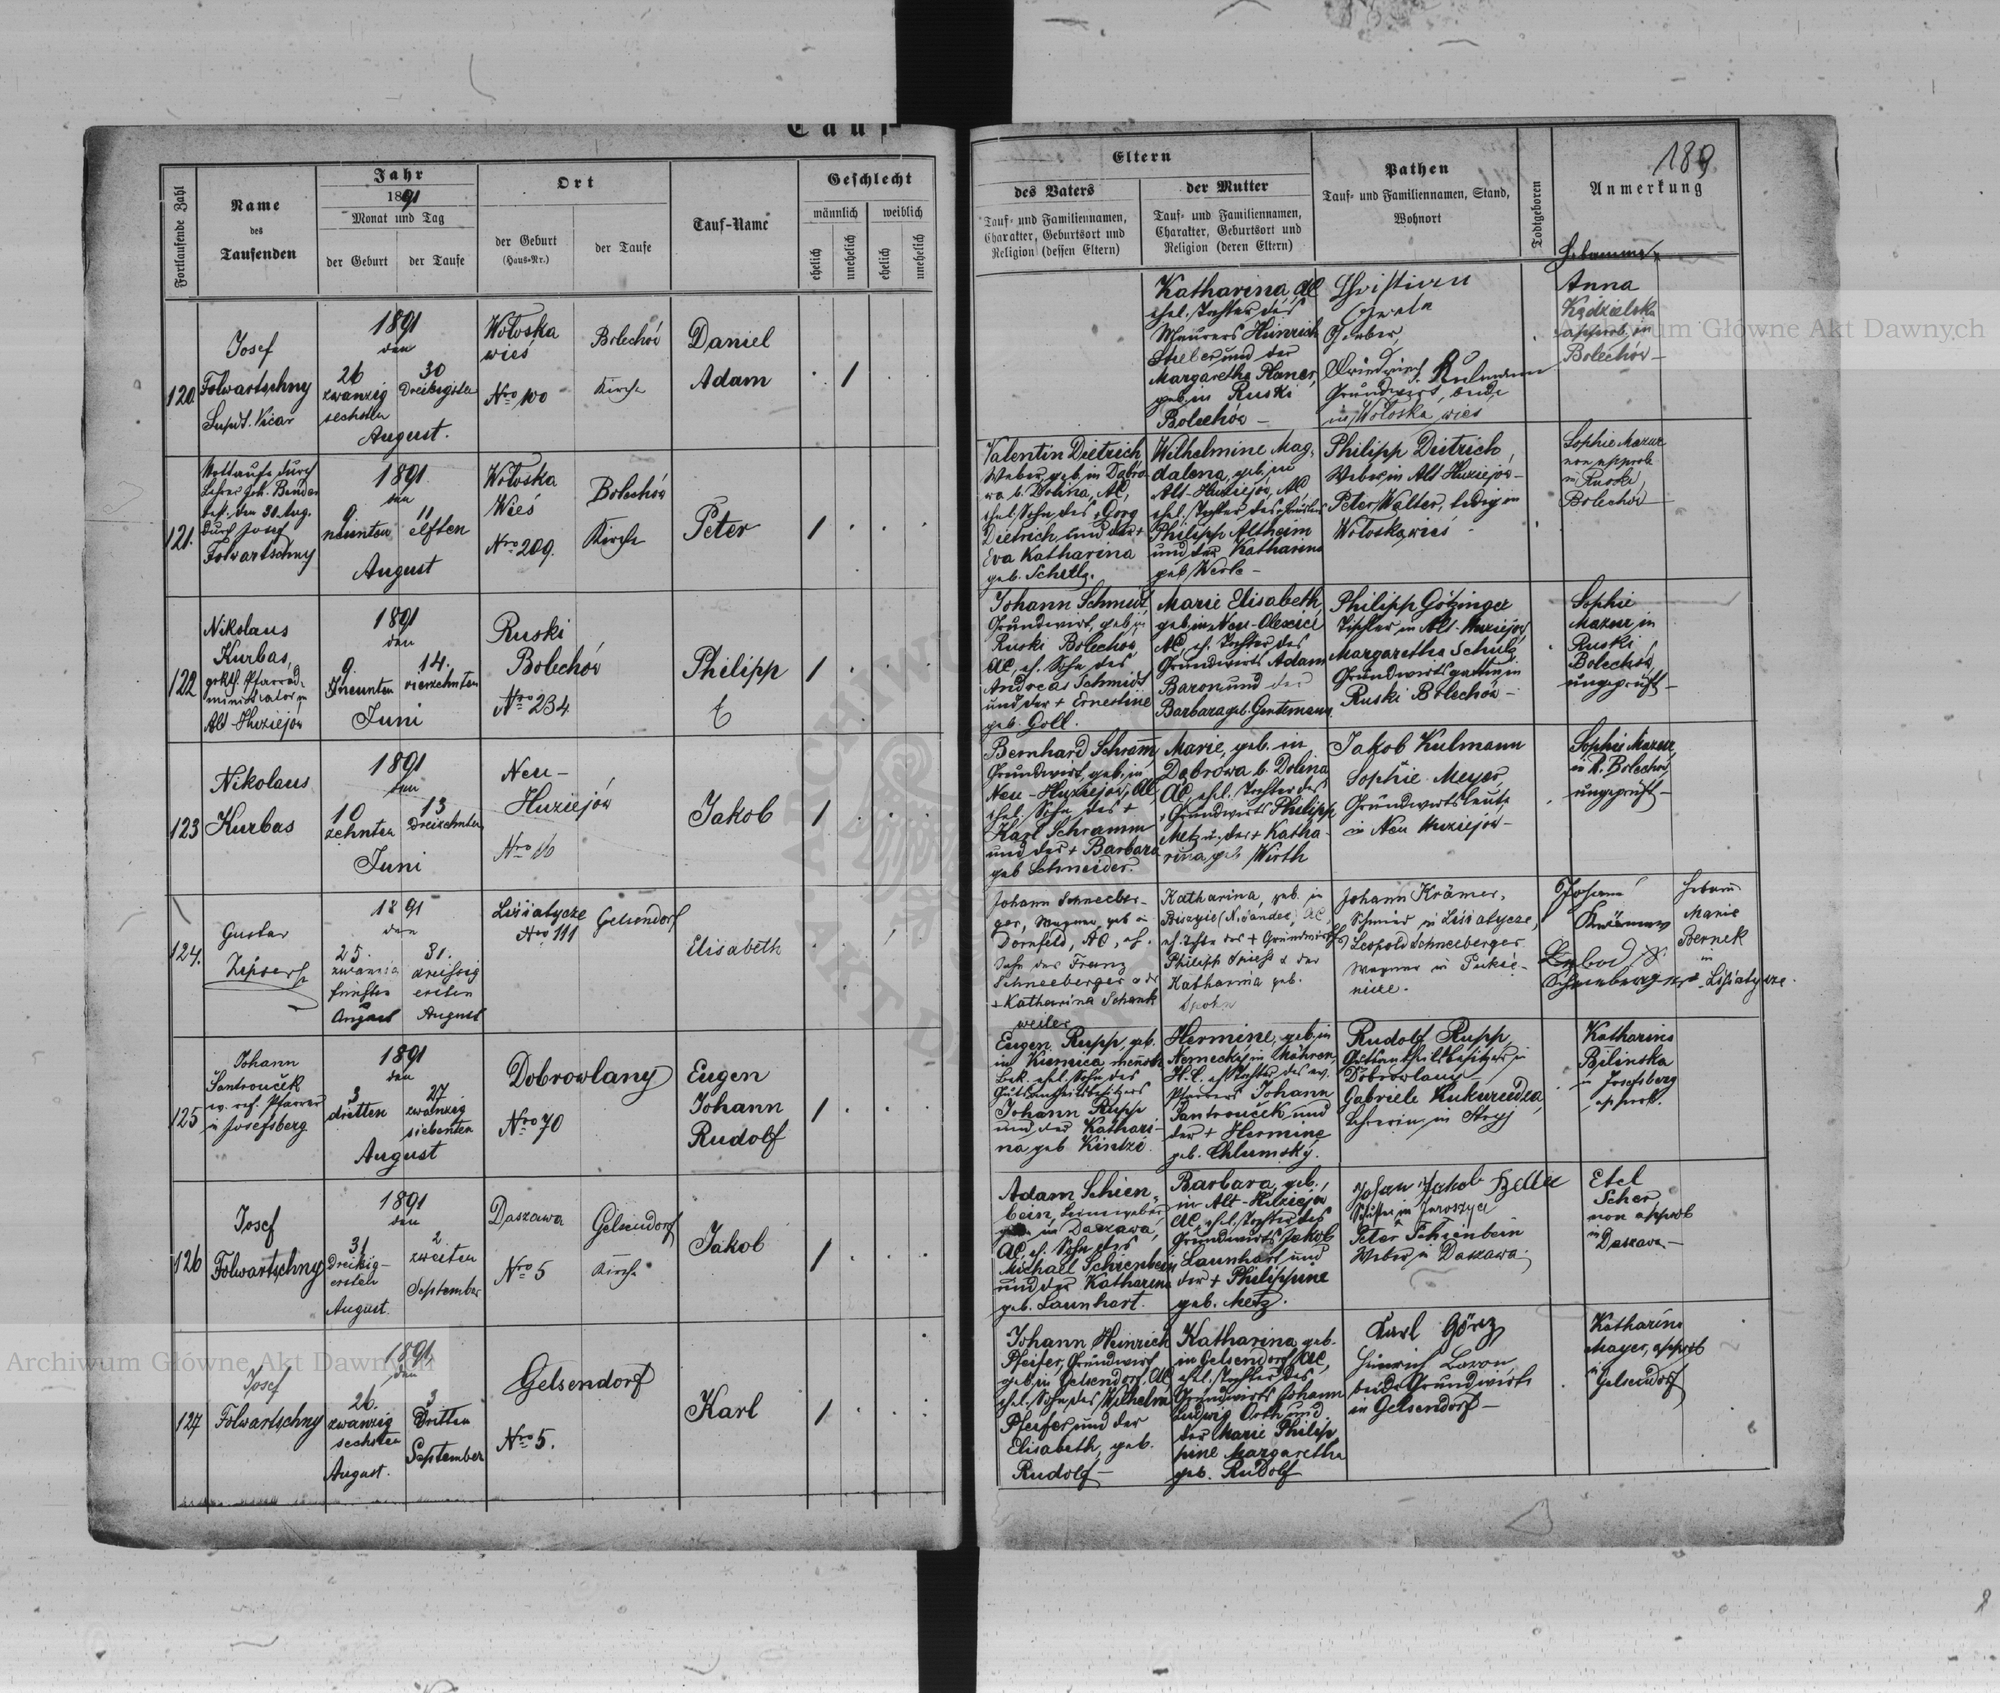 Tauf-
189
Fortlaufende Zahl
Name
des
Taufenden
Jahr
1891
Monat und Tag
der Geburt
der Taufe
Ort
der Geburt
(Haus-Nr.)
der Taufe
Tauf-Name
Geschlecht
männlich
weiblich
ehelich
unehelich
ehelich
unehelich
Eltern
des Vaters
Tauf- und Familiennamen,
Charakter, Geburtsort und
Religion (dessen Eltern)
der Mutter
Tauf- und Familiennamen,
Charakter, Geburtsort und
Religion (deren Eltern)
Pathen
Tauf- und Familiennamen, Stand,
Wohnort
Todtgeboren
Anmerkung
120.
Josef
Folwartschny
Supdt. Vicar
1891
den
26
zwanzig
sechsten
30
Dreißigsten
August.
Wołoska
wieś
Nro 100
Bolechów
Kirche
Daniel
Adam
Katharina AC
ehel. Tochter des
Maurers Heinrich
Stieber und der
Margaretha Planer,
geb. in Ruski
Bolechów
Christian
Friedrich Kulmann
Grundwirt, beide
in Wołoska wieś
Hebamme
Anna
Kędzielska
approb. in
Bolechów
121.
Nottaufe durch
Lehrer Joh. Bender
best. den 30. Aug.
durch Josef
Folwartschny
1891
den
9
neunten
11
elften
August
Wołoska
Wieś
Nro 209.
Bolechów
Kirche
Peter
Valentin Dietrich
Weber, geb. in Dąbro
wa b. Dolina, AC,
ehel. Sohn des + Georg
Dietrich und der +
Eva Katharina
geb.
Wilhelmine Mag-
dalena, geb. in
Alt-Huziejów, AC
ehel. Tochter des
Philipp Altheim
und der Katharina
geb. Werle
Philipp Dietrich,
Weber in Alt Huziejów
Peter Walter, ledig in
Wołoskawieś
Sophie Mazur
non approb.
in Ruski
Bolechów
122
Nikolaus
Kurbas,
grkth. Pfarrad-
ministrator in
Alt-Huziejów
1891
den
9.
neunten
14.
vierzehnten
Juni
Ruski
Bolechów
Nro 234
Philipp
Johann Schmidt,
Grundwirt, geb. in
Ruski Bolechów
AC, eh. Sohn des
Andreas Schmidt
und der + Ernestine
geb. Goll.
Marie Elisabeth,
geb. in Neu-Olexici
AC, eh. Tochter des
Grundwirts Adam
Baron und der
Barbara geb. Gentemann
Philipp Götzinger
Tischler in Alt-Huziejów
Margaretha Schulz
Grundwirtsgattin in
Ruski Bolechów
Sophie
Mazur in
Ruski
Bolechów,
ungeprüft
123
Nikolaus
Kurbas
1891
den
10
zehnten
13
Dreizehnten
Juni
Neu-
Huziejów
Nro 16
Jakob
Bernhard Schramm,
Grundwirt, geb. in
Neu-Huziejów, AC,
ehel. Sohn des +
Karl Schramm
und der + Barbara
geb. Schneider.
Marie, geb. in
Dąbrowa b. Dolina
AC, ehel. Tochter des
+ Grundwirts Philipp
Metz u. der + Katha-
rina, geb. Wirth
Jakob Kulmann
Sophie Meyer
Grundwirtsleute
in Neu Huziejów
Sophie Mazur,
in R. Bolechów,
ungeprüft
124.
Gustav
Zipser
1891
den
25.
fünften
August
31.
dreißig
ersten
August
Lisiatycze
Nro 111
Gelsendorf
Elisabeth
Johann Schneeber-
ger, Wagner, geb. in
Dornfeld, AC, eh.
Sohn des Franz
Schneeberger u. der
+ Katharina Schank
weiler
Katharina, geb. in
(N. Sandec), AC,
eh. Tochter des + Grundwirts
Philipp Spiess & der
Katharina geb.
Johann Krämer,
Schmied in Lisiatycze,
Leopold Schneeberger
Wagner in
Johann
Krämer
Schneeberger
Hebamme
Marie
Bernek
in
Lisiatycze.
125
Johann
Jantrouček
ev. ref. Pfarrer
in Josefsberg
1891
den
3
dritten
27
zwanzig
siebenten
August
Dobrowlany
Nro 70
Eugen
Johann
Rudolf
Eugen Rupp, geb.
in Kunica,
Bek. ehel. Sohn des
Gutsantheilbesitzers
Johann Rupp
und der Kathari-
na geb. Kintzi.
Hermine, geb. in
Nemecky in Mähren,
H.C. eh. Tochter des ev.
Pfarrers Johann
Jantrouček und
der + Hermine
geb. Chlumský.
Rudolf Rupp,
Gutsantheilbesitzer in
Dobrowlany
Gabriele Kukurudza,
Lehrerin in Stryj
Katharina
Bilinska
in Josefsberg
approb.
126
Josef
Folwartschny
1891
den
31
Dreißig-
ersten
August.
2.
zweiten
September
Daszawa
Nro 5
Gelsendorf
Kirche
Jakob
Adam Schien-
bein,
in Daszawa,
AC, eh. Sohn des
Michael Schienbein
und der Katharina
geb. Launhart.
Barbara, geb.,
in Alt-Huziejów
AC, ehel. Tochter des
Grundwirts Jakob
Launhart und
der + Philippine
geb. Metz.
Johann Jakob
in Jaroszyce
Peter Schienbein
Weber in Daszawa
Etel
Scher,
non approb
in
Daszawa
127
Josef
Folwartschny
1891
den
26.
zwanzig
sechsten
August.
3
Dritten
September
Gelsendorf
Nro 5.
Karl
Johann Heinrich
Pfeifer, Grundwirt
geb. in Gelsendorf, AC
ehel. Sohn des Wilhelm
Pfeifer und der
Elisabeth, geb.
Rudolf
Katharina, geb.
in Gelsendorf, AC,
ehel. Tochter des
Grundwirts Johann
Ludwig Orth und
der Marie Philip
pine Margaretha
geb. Rudolf
Karl Görz
Heinrich Baron
beide Grundwirte
in Gelsendorf
Katharina
Mayer, approb
in
Gelsendorf
Archiwum Główne Akt Dawnych
Archiwum Główne Akt Dawnych